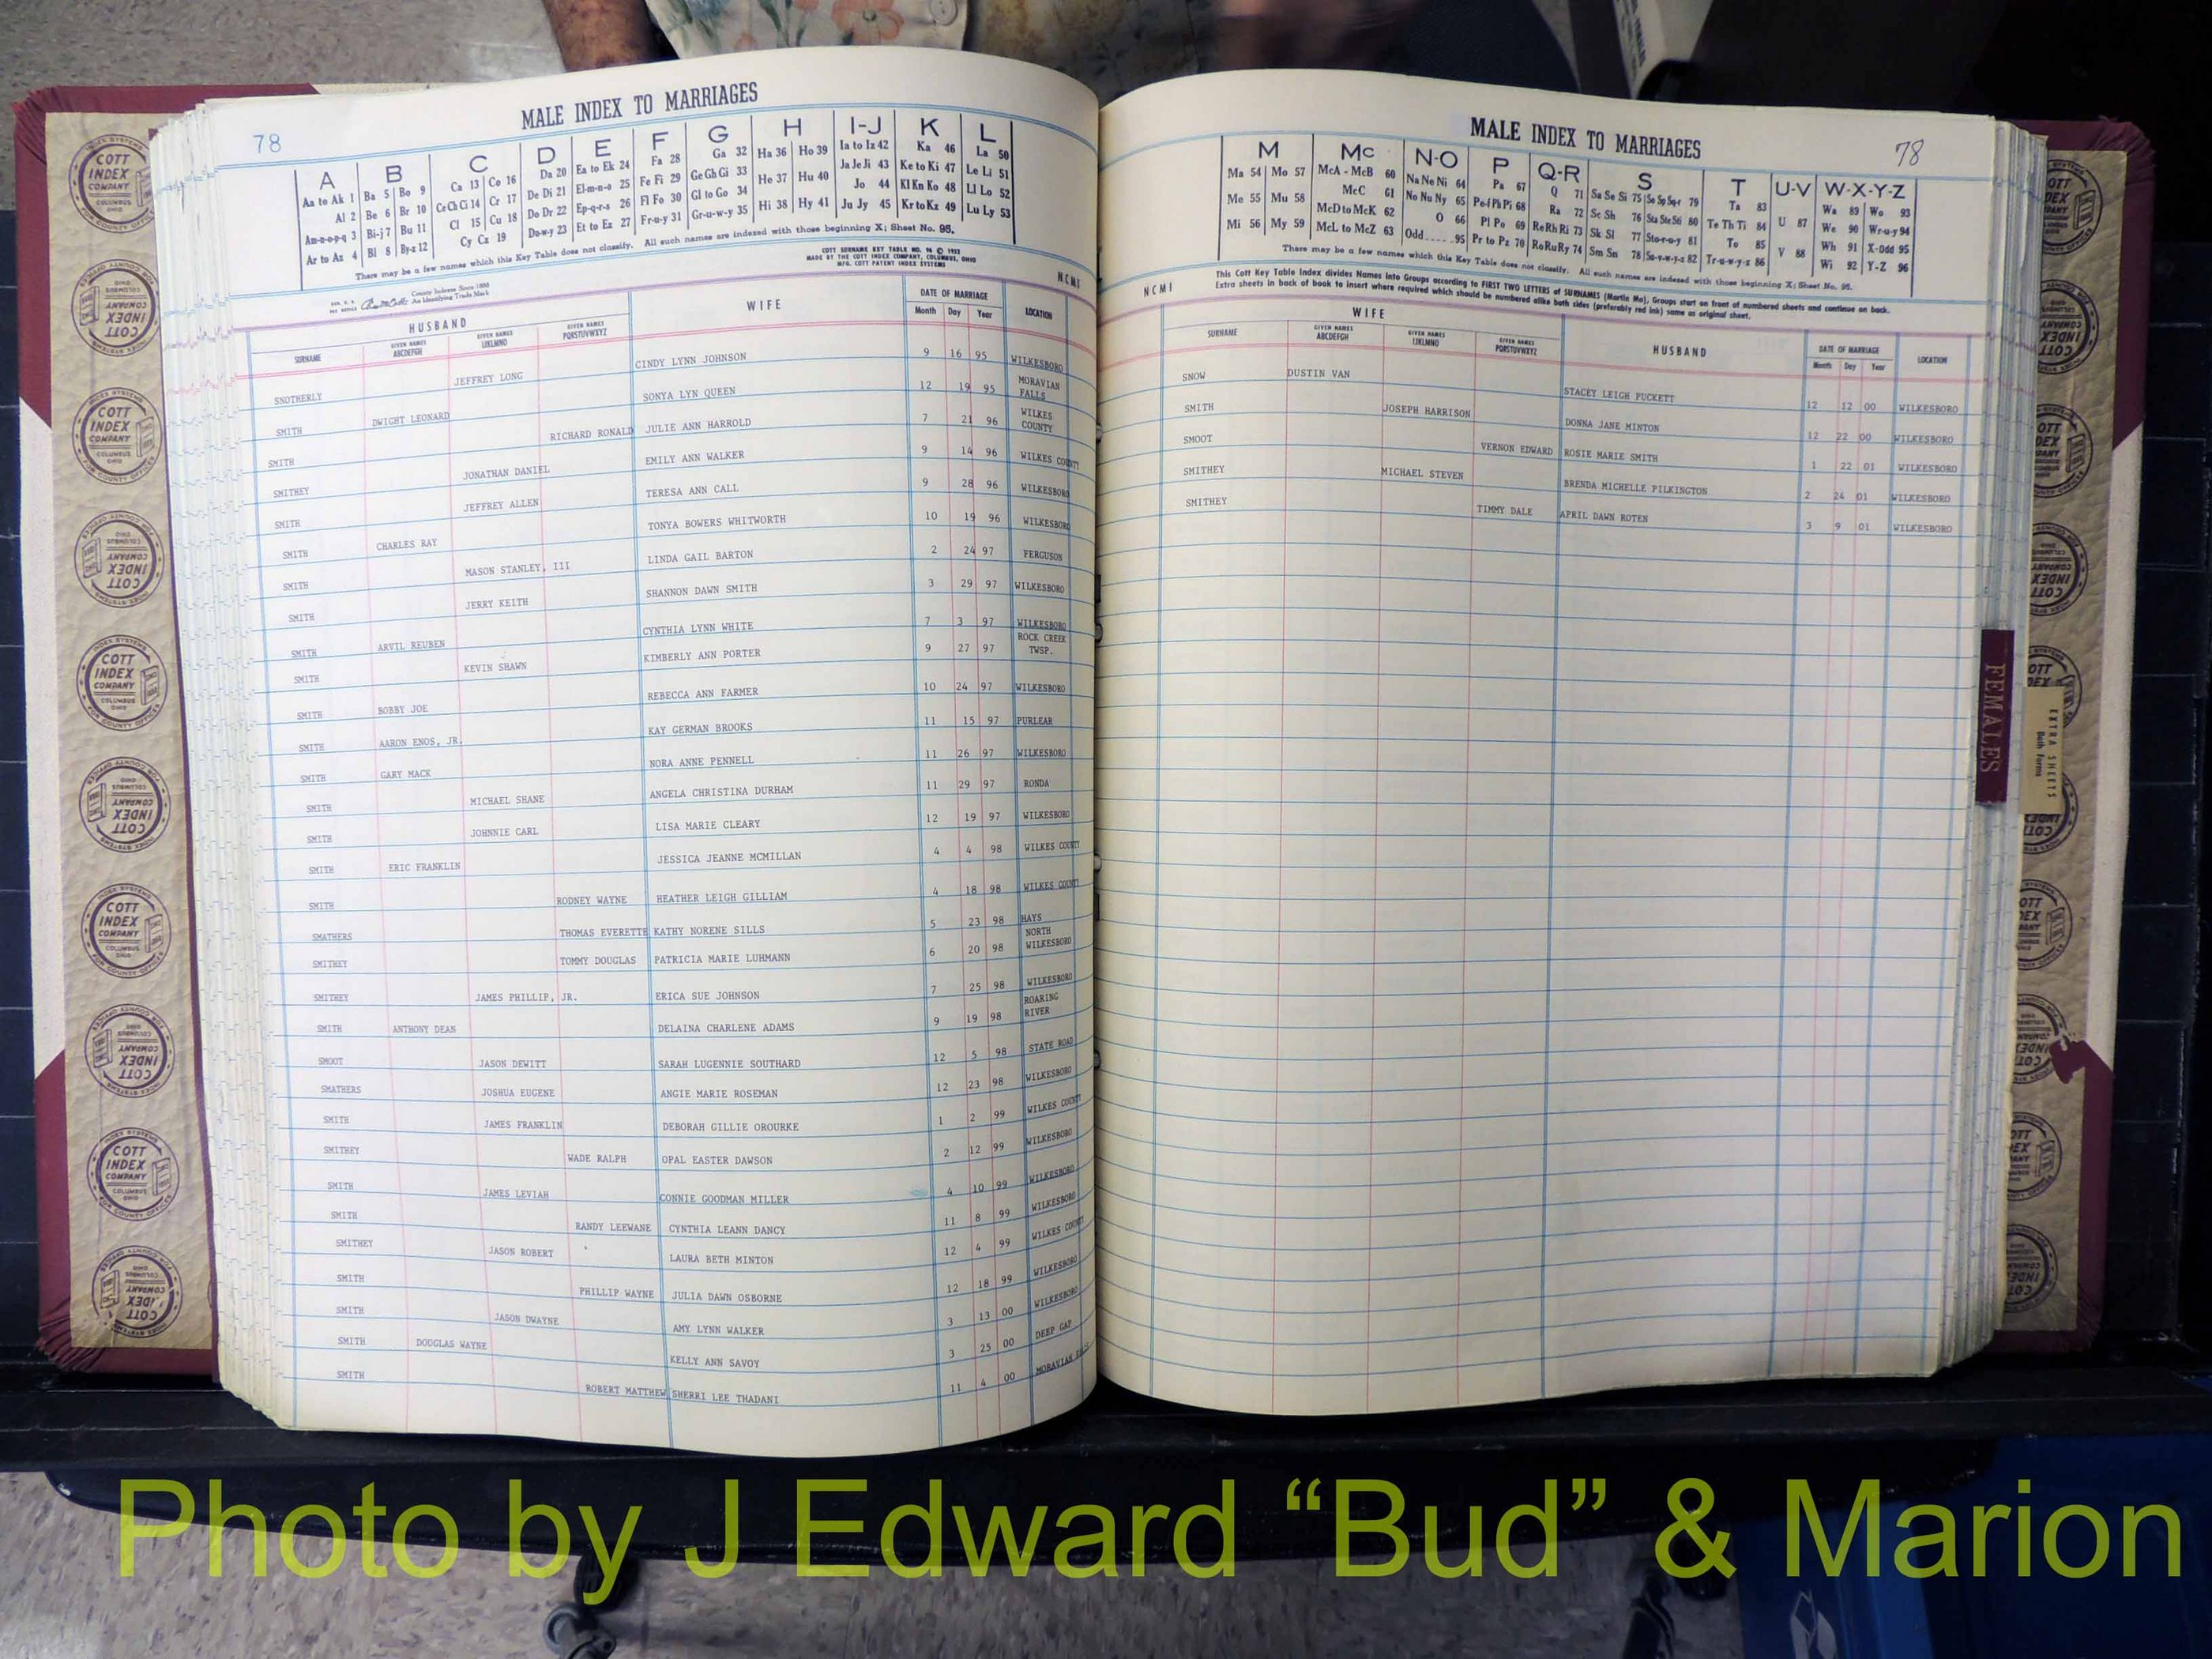 MALE INDEX TO MARRIAGES
78
A B C D E F G H I-J K L
Aa to Ak 1 Ba 5 Bo 9 Ca 13 Co 16 Da 20 Ea to Ek 24 Fa 28 Ga 32 Ha 36 Ho 39 Ia to Iz 42 Ka 46 La 50
Al 2 Be 6 Br 10 Ce Ch Ci 14 Cr 17 De Di 21 El-m-n-o 25 Fe Fi 29 Ge Gh Gi 33 He 37 Hu 40 Ja Je Ji 43 Ke to Ki 47 Le Li 51
Am-n-o-p-q 3 Bi-j 7 Bu 11 Cl 15 Cu 18 Do Dr 22 Ep-q-r-s 26 Fl Fo 30 Gl to Go 34 Hi 38 Hy 41 Jo 44 Kl Kn Ko 48 Ll Lo 52
Ar to Az 4 Bl 8 By-z 12 Cy Cz 19 Du-w-y 23 Et to Ez 27 Fr-u-y 31 Gr-u-w-y 35 Ju Jy 45 Kr to Kz 49 Lu Ly 53
There may be a few names which this Key Table does not classify. All such names are indexed with those beginning X; Sheet No. 95.
COTT SURNAME KEY TABLE NO. 96 © 1953
MADE BY THE COTT INDEX COMPANY, COLUMBUS, OHIO
MFG. COTT PATENT INDEX SYSTEMS
County Indexes Since 1888
An Identifying Trade Mark
NCMI
HUSBAND WIFE DATE OF MARRIAGE LOCATION
SURNAME GIVEN NAMES ABCDEFGH GIVEN NAMES IJKLMNO GIVEN NAMES PQRSTUVWXYZ Month Day Year
SNOTHERLY JEFFREY LONG CINDY LYNN JOHNSON 9 16 95 WILKESBORO
SMITH DWIGHT LEONARD SONYA LYN QUEEN 12 19 95 MORAVIAN FALLS
SMITH RICHARD RONALD JULIE ANN HARROLD 7 21 96 WILKES COUNTY
SMITHEY JONATHAN DANIEL EMILY ANN WALKER 9 14 96 WILKES COUNTY
SMITH JEFFREY ALLEN TERESA ANN CALL 9 28 96 WILKESBORO
SMITH CHARLES RAY TONYA BOWERS WHITWORTH 10 19 96 WILKESBORO
SMITH MASON STANLEY, III LINDA GAIL BARTON 2 24 97 FERGUSON
SMITH JERRY KEITH SHANNON DAWN SMITH 3 29 97 WILKESBORO
SMITH ARVIL REUBEN CYNTHIA LYNN WHITE 7 3 97 WILKESBORO
SMITH KEVIN SHAWN KIMBERLY ANN PORTER 9 27 97 ROCK CREEK TWSP.
SMITH BOBBY JOE REBECCA ANN FARMER 10 24 97 WILKESBORO
SMITH AARON ENOS, JR. KAY GERMAN BROOKS 11 15 97 PURLEAR
SMITH GARY MACK NORA ANNE PENNELL 11 26 97 WILKESBORO
SMITH MICHAEL SHANE ANGELA CHRISTINA DURHAM 11 29 97 RONDA
SMITH JOHNNIE CARL LISA MARIE CLEARY 12 19 97 WILKESBORO
SMITH ERIC FRANKLIN JESSICA JEANNE MCMILLAN 4 4 98 WILKES COUNTY
SMITH RODNEY WAYNE HEATHER LEIGH GILLIAM 4 18 98 WILKES COUNTY
SMATHERS THOMAS EVERETTE KATHY NORENE SILLS 5 23 98 HAYS
SMITHEY TOMMY DOUGLAS PATRICIA MARIE LUHMANN 6 20 98 NORTH WILKESBORO
SMITHEY JAMES PHILLIP, JR. ERICA SUE JOHNSON 7 25 98 WILKESBORO
SMITH ANTHONY DEAN DELAINA CHARLENE ADAMS 9 19 98 ROARING RIVER
SMOOT JASON DEWITT SARAH LUGENNIE SOUTHARD 12 5 98 STATE ROAD
SMATHERS JOSHUA EUGENE ANGIE MARIE ROSEMAN 12 23 98 WILKESBORO
SMITH JAMES FRANKLIN DEBORAH GILLIE OROURKE 1 2 99 WILKES COUNTY
SMITHEY WADE RALPH OPAL EASTER DAWSON 2 12 99 WILKESBORO
SMITH JAMES LEVIAH CONNIE GOODMAN MILLER 4 10 99 WILKESBORO
SMITH RANDY LEEWANE CYNTHIA LEANN DANCY 11 8 99 WILKESBORO
SMITHEY JASON ROBERT LAURA BETH MINTON 12 4 99 WILKES COUNTY
SMITH PHILLIP WAYNE JULIA DAWN OSBORNE 12 18 99 WILKESBORO
SMITH JASON DWAYNE AMY LYNN WALKER 3 13 00 WILKESBORO
SMITH DOUGLAS WAYNE KELLY ANN SAVOY 3 25 00 DEEP GAP
SMITH ROBERT MATTHEW SHERRI LEE THADANI 11 4 00 MORAVIAN FALLS
MALE INDEX TO MARRIAGES
78
M Mc N-O P Q-R S T U-V W-X-Y-Z
Ma 54 Mo 57 McA - McB 60 Na Ne Ni 64 Pa 67 Q 71 Sa Se Si 75 So Sp Sq-r 79 Ta 83 U 87 Wa 89 Wo 93
Me 55 Mu 58 McC 61 No Nu Ny 65 Pe-f Ph Pi 68 Ra 72 Sc Sh 76 Sta Ste Sti 80 Te Th Ti 84 V 88 We 90 Wr-u-y 94
Mi 56 My 59 McD to McK 62 O 66 Pl Po 69 Re Rh Ri 73 Sk Sl 77 Sto-r-u-y 81 To 85 Wh 91 X-Odd 95
McL to McZ 63 Odd 95 Pr to Pz 70 Ro Ru Ry 74 Sm Sn 78 Su-v-w-y-z 82 Tr-u-w-y-z 86 Wi 92 Y-Z 96
There may be a few names which this Key Table does not classify. All such names are indexed with those beginning X; Sheet No. 95.
This Cott Key Table Index divides Names into Groups according to FIRST TWO LETTERS of SURNAMES (Martin Ma), Groups start on front of numbered sheets and continue on back.
Extra sheets in back of book to insert where required which should be numbered alike both sides (preferably red ink) same as original sheet.
NCMI
WIFE HUSBAND DATE OF MARRIAGE LOCATION
SURNAME GIVEN NAMES ABCDEFGH GIVEN NAMES IJKLMNO GIVEN NAMES PQRSTUVWXYZ Month Day Year
SNOW DUSTIN VAN STACEY LEIGH PUCKETT 12 12 00 WILKESBORO
SMITH JOSEPH HARRISON DONNA JANE MINTON 12 22 00 WILKESBORO
SMOOT VERNON EDWARD ROSIE MARIE SMITH 1 22 01 WILKESBORO
SMITHEY MICHAEL STEVEN BRENDA MICHELLE PILKINGTON 2 24 01 WILKESBORO
SMITHEY TIMMY DALE APRIL DAWN ROTEN 3 9 01 WILKESBORO
FEMALES
EXTRA SHEETS
Both Forms
COTT INDEX COMPANY
COLUMBUS OHIO
FOR COUNTY OFFICES
Photo by J Edward “Bud” & Marion